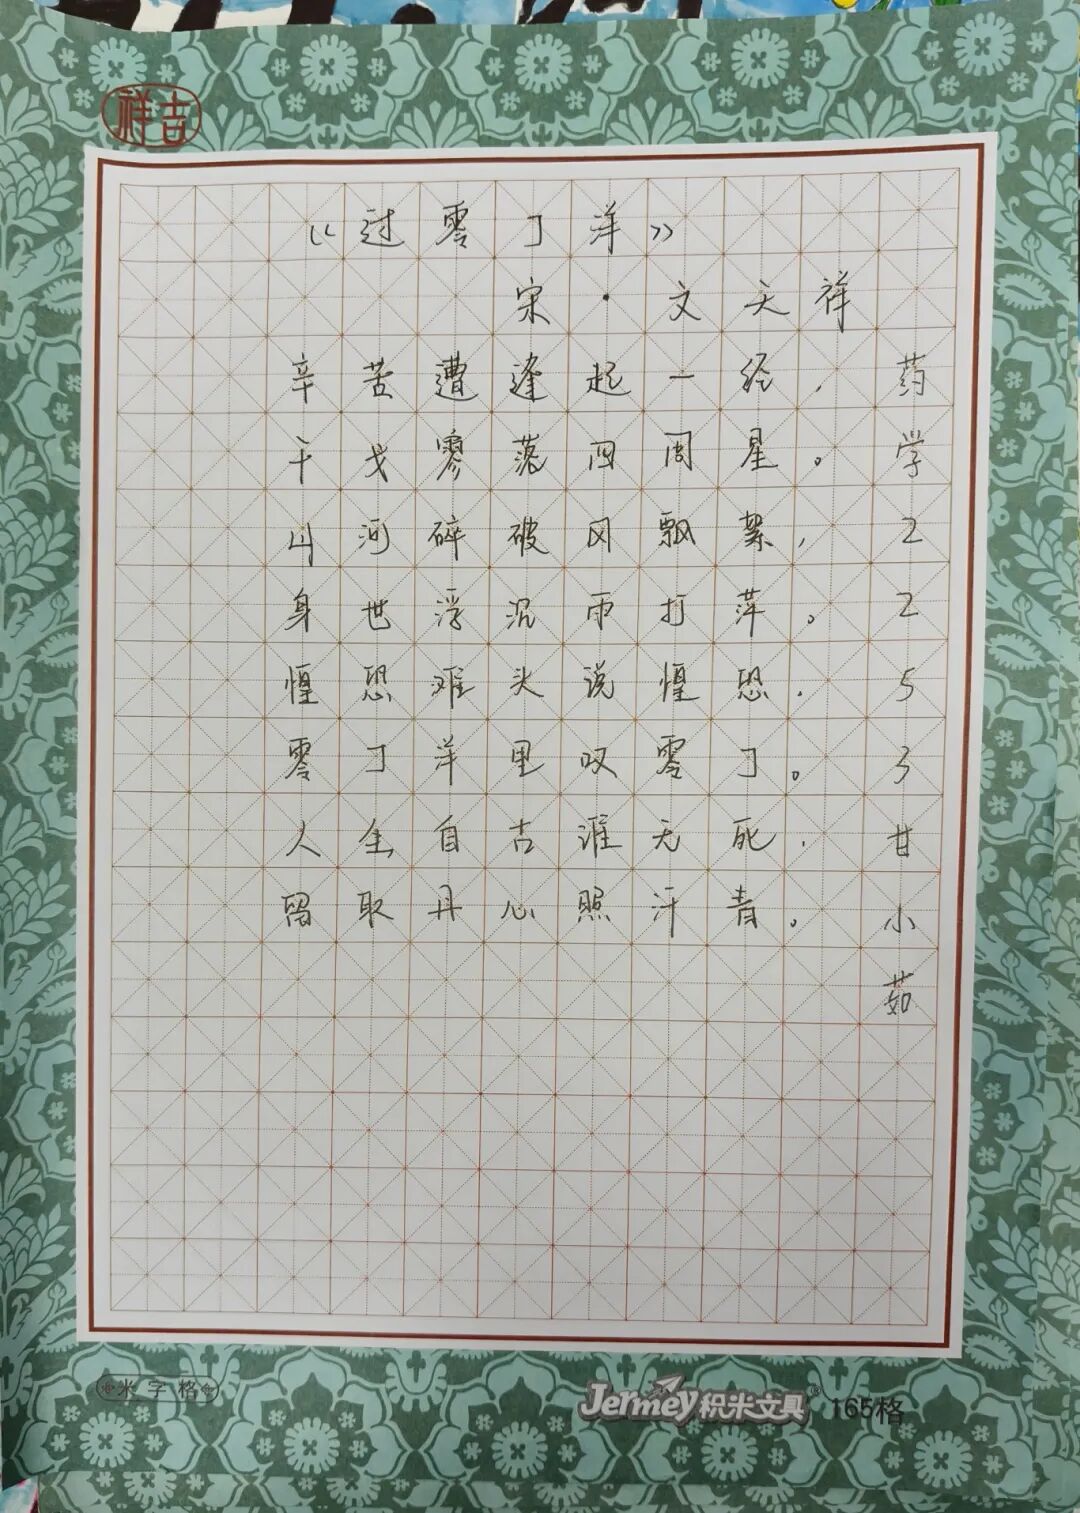 吉祥
《过零丁洋》
宋·文天祥
辛苦遭逢起一经,
干戈寥落四周星。
山河碎破风飘絮,
身世浮沉雨打萍。
惶恐难头说惶恐,
零丁洋里叹零丁。
人生自古谁无死,
留取丹心照汗青。
药学2253甘小茹
米字格
Jermey积米文具® 165格